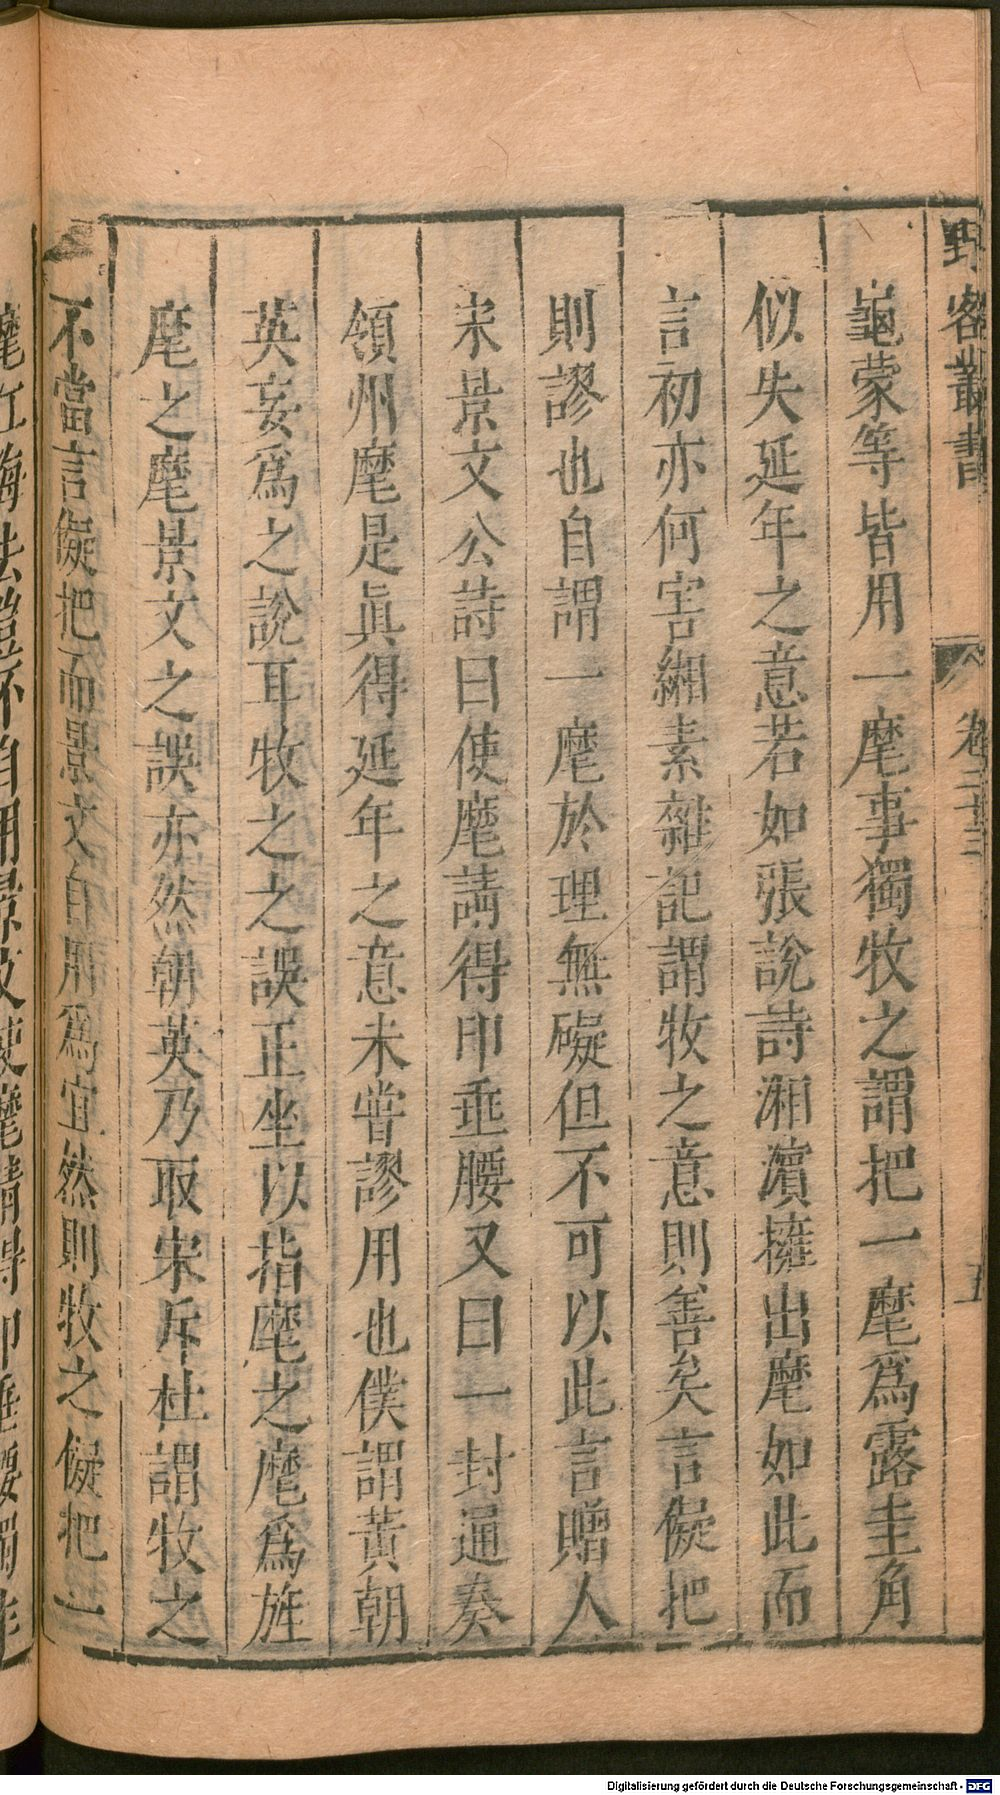 野客叢書
卷二十三
五
龜蒙等皆用一麾事獨牧之謂把一麾爲露圭角
似失延年之意若如張說詩湘濱擁出麾如此而
言初亦何害緗素雜記謂牧之意則善矣言儗把
則謬也自謂一麾於理無礙但不可以此言贈人
宋景文公詩曰使麾請得印垂腰又曰一封通奏
領州麾是眞得延年之意未甞謬用也僕謂黃朝
英妄爲之說耳牧之之誤正坐以指麾之麾爲旌
麾之麾景文之誤亦然朝英乃取宋斥杜謂牧之
不當言儗把而景文自用爲宜然則牧之儗把一
麾江海去豈不自用景文使麾請得印垂腰獨非
Digitalisierung gefördert durch die Deutsche Forschungsgemeinschaft - DFG